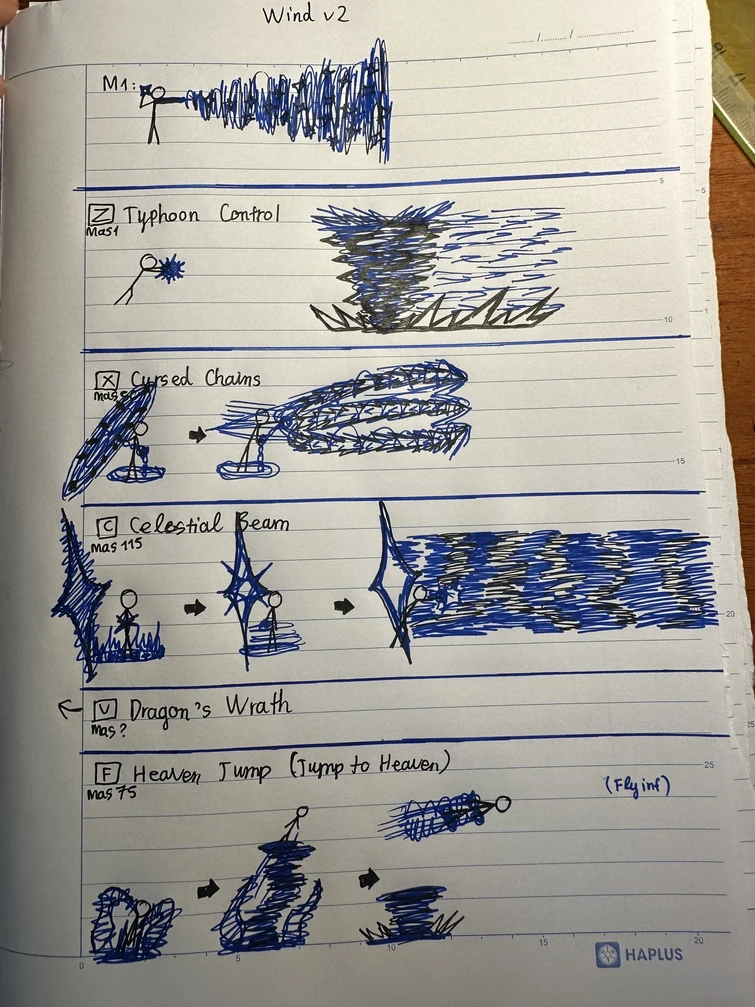 Wind v2
M1:
Z Typhoon Control
Mas 1
X Cursed Chains
Mas
C Celestial Beam
Mas 115
V Dragon's Wrath
Mas ?
F Heaven Jump (Jump to Heaven)
Mas 75
(Fly inf)
5
5
10
1
15
1
20
25
25
0
5
10
15
20
HAPLUS